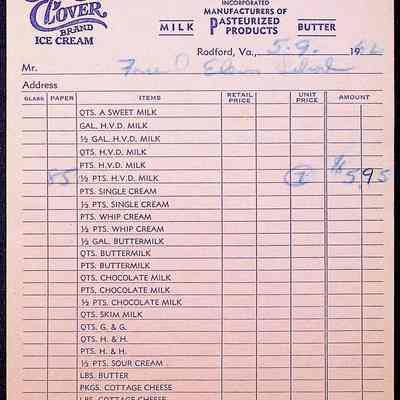 CLOVER
BRAND
ICE CREAM
INCORPORATED
MANUFACTURERS OF
MILK PASTEURIZED PRODUCTS BUTTER
Radford, Va., 5-9. 19
Mr.
Address
GLASS PAPER ITEMS RETAIL PRICE UNIT PRICE AMOUNT
QTS. A SWEET MILK
GAL. H.V.D. MILK
½ GAL. H.V.D. MILK
QTS. H.V.D. MILK
PTS. H.V.D. MILK
85 ½ PTS. H.V.D. MILK 7 $5.95
PTS. SINGLE CREAM
½ PTS. SINGLE CREAM
PTS. WHIP CREAM
½ PTS. WHIP CREAM
½ GAL. BUTTERMILK
QTS. BUTTERMILK
PTS. BUTTERMILK
QTS. CHOCOLATE MILK
PTS. CHOCOLATE MILK
½ PTS. CHOCOLATE MILK
QTS. SKIM MILK
QTS. G. & G.
QTS. H. & H.
PTS. H. & H.
½ PTS. SOUR CREAM
LBS. BUTTER
PKGS. COTTAGE CHEESE
LBS. COTTAGE CHEESE